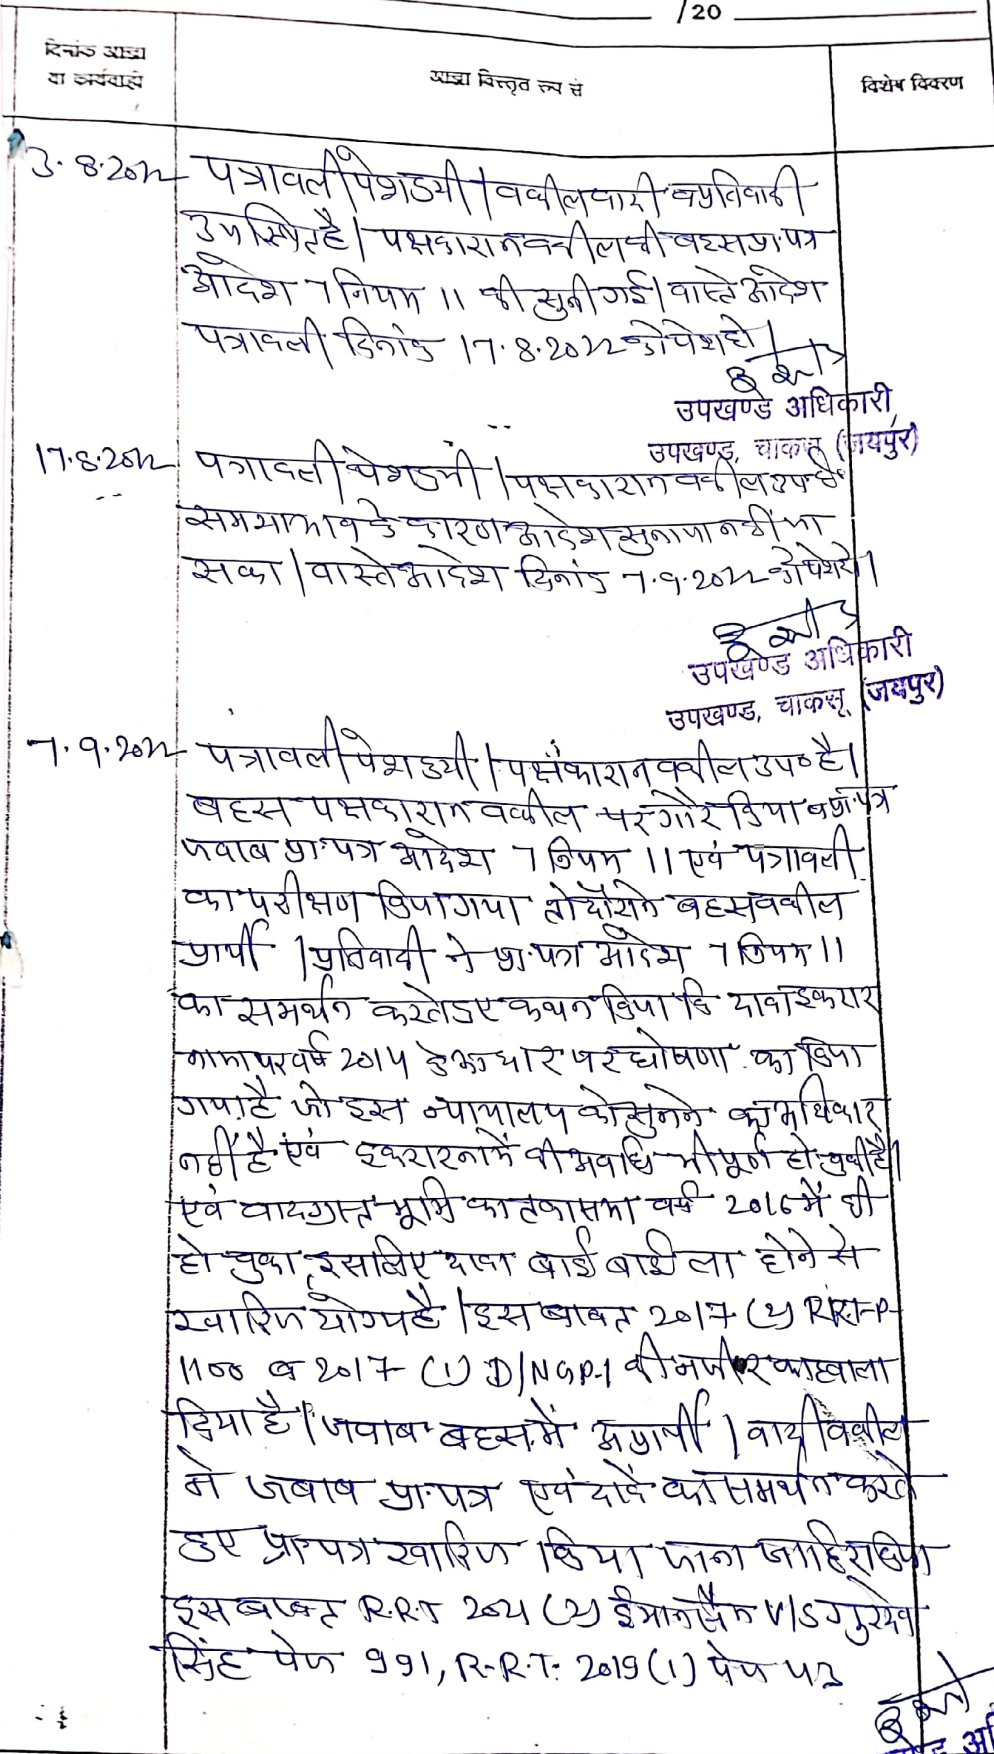 /20
दिनांक आज्ञा
या कार्यवाही
आज्ञा विस्तृत रूप से
विशेष विवरण
3.8.2022 पत्रावली पेश हुयी। वकील वादी व प्रतिवादी
उपस्थित है। पक्षकारान वकील की बहस प्रा.पत्र
आदेश 7 नियम 11 की सुनी गई। वास्ते आदेश
पत्रावली दिनांक 17.8.2022 को पेश हो।
उपखण्ड अधिकारी
उपखण्ड, चाकसू (जयपुर)
17.8.2022 पत्रावली पेश हुयी। पक्षकारान वकील उप० है
समयाभाव के कारण आदेश सुनाया नहीं जा
सका। वास्ते आदेश दिनांक 7.9.2022 को पेश हो।
उपखण्ड अधिकारी
उपखण्ड, चाकसू (जयपुर)
7.9.2022 पत्रावली पेश हुयी। पक्षकारान वकील उप० है।
बहस पक्षकारान वकील पर गौर किया व प्रा.पत्र
जवाब प्रा.पत्र आदेश 7 नियम 11 एवं पत्रावली
का परीक्षण किया गया तो दौराने बहस वकील
प्रार्थी / प्रतिवादी ने प्रा.पत्र आदेश 7 नियम 11
का समर्थन करते हुए कथन किया कि दावा इकरार
नामा वर्ष 2014 के आधार पर घोषणा का किया
गया है जो इस न्यायालय को सुनने का अधिकार
नहीं है एवं इकरारनामें की अवधि भी पूर्ण हो चुकी है।
एवं वादग्रस्त भूमि का तकासमा वर्ष 2016 में ही
हो चुका, इसलिए दावा बाई बार्ड ला होने से
खारिज योग्य है। इस बाबत 2017 (2) RRT-P-
1100 व 2017 (1) DNJ P-1 की नजीर का हवाला
दिया है। जवाब बहस में अप्रार्थी / वादी वकील
ने जबाब प्रा.पत्र एवं दावे का समर्थन करते
हुए प्रा.पत्र खारिज किया जाना जाहिर किया
इस बाबत R.R.T 2021 (2) V/S गुरदेव
सिंह पेज 991, R.R.T. 2019 (1) पेज 43